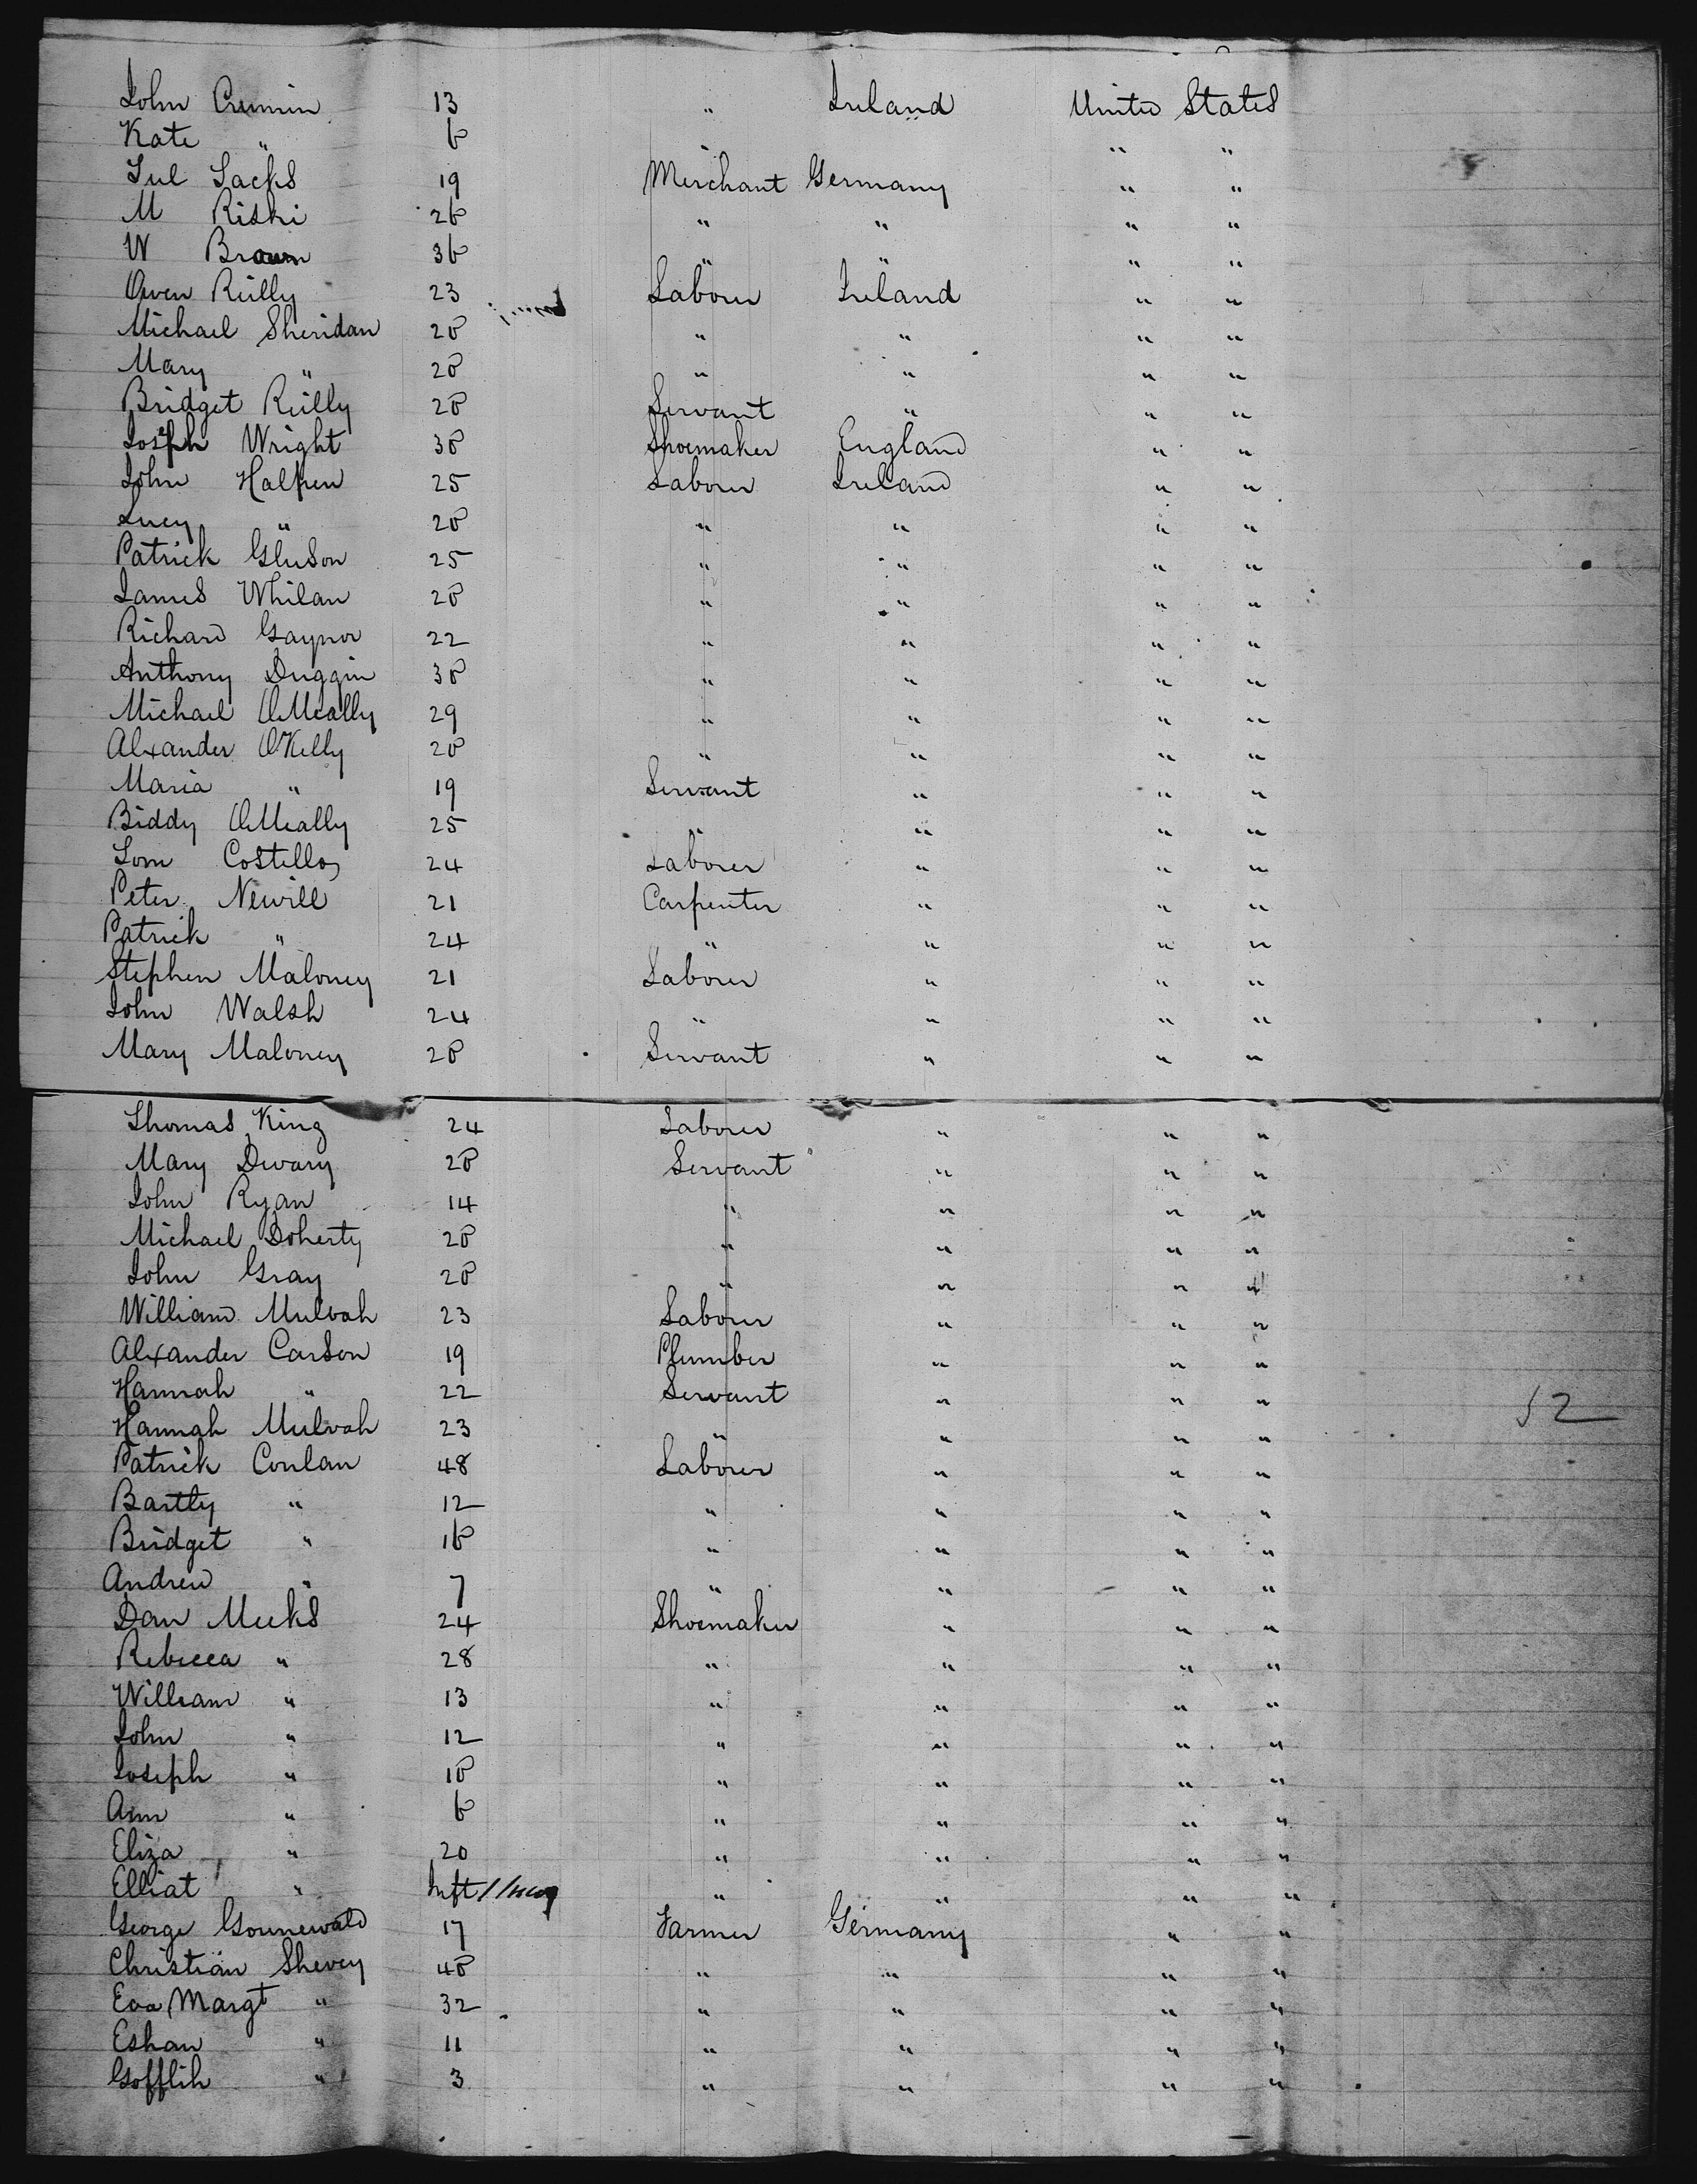 John Crumin 13 " Ireland United States
Kate " 6 " " "
Jul Sacks 19 Merchant Germany " "
M Riski 26 " " " "
W Brown 36 " " " "
Owen Reilly 23 Laborer Ireland " "
Michael Sheridan 20 " " " "
Mary " 20 " " " "
Bridget Reilly 20 Servant " " "
Joseph Wright 30 Shoemaker England " "
John Halpen 25 Laborer Ireland " "
Lucy " 20 " " " "
Patrick Gleeson 25 " " " "
James Whelan 20 " " " "
Richard Gaynor 22 " " " "
Anthony Duggin 30 " " " "
Michael OMeally 29 " " " "
Alexander OKelly 20 " " " "
Maria " 19 Servant " " "
Biddy OMeally 25 " " " "
Tom Costello 24 Laborer " " "
Peter Newill 21 Carpenter " " "
Patrick " 24 " " " "
Stephen Maloney 21 Laborer " " "
John Walsh 24 " " " "
Mary Maloney 20 Servant " " "
Thomas King 24 Laborer " " "
Mary Devary 20 Servant " " "
John Ryan 14 " " " "
Michael Doherty 20 " " " "
John Gray 20 " " " "
William Mulvah 23 Laborer " " "
Alexander Carson 19 Plumber " " "
Hannah " 22 Servant " " "
52
Hannah Mulvah 23 " " " "
Patrick Conlan 48 Laborer " " "
Bartly " 12 " " " "
Bridget " 16 " " " "
Andrew " 7 " " " "
Dan Meeks 24 Shoemaker " " "
Rebecca " 28 " " " "
William " 13 " " " "
John " 12 " " " "
Joseph " 10 " " " "
Ann " 6 " " " "
Eliza " 20 " " " "
Elliat " Inft " " " "
George Gonnewald 17 Farmer Germany " "
Christian Shevey 40 " " " "
Eva Margt " 32 " " " "
Eshan " 11 " " " "
Gofflih " 3 " " " "